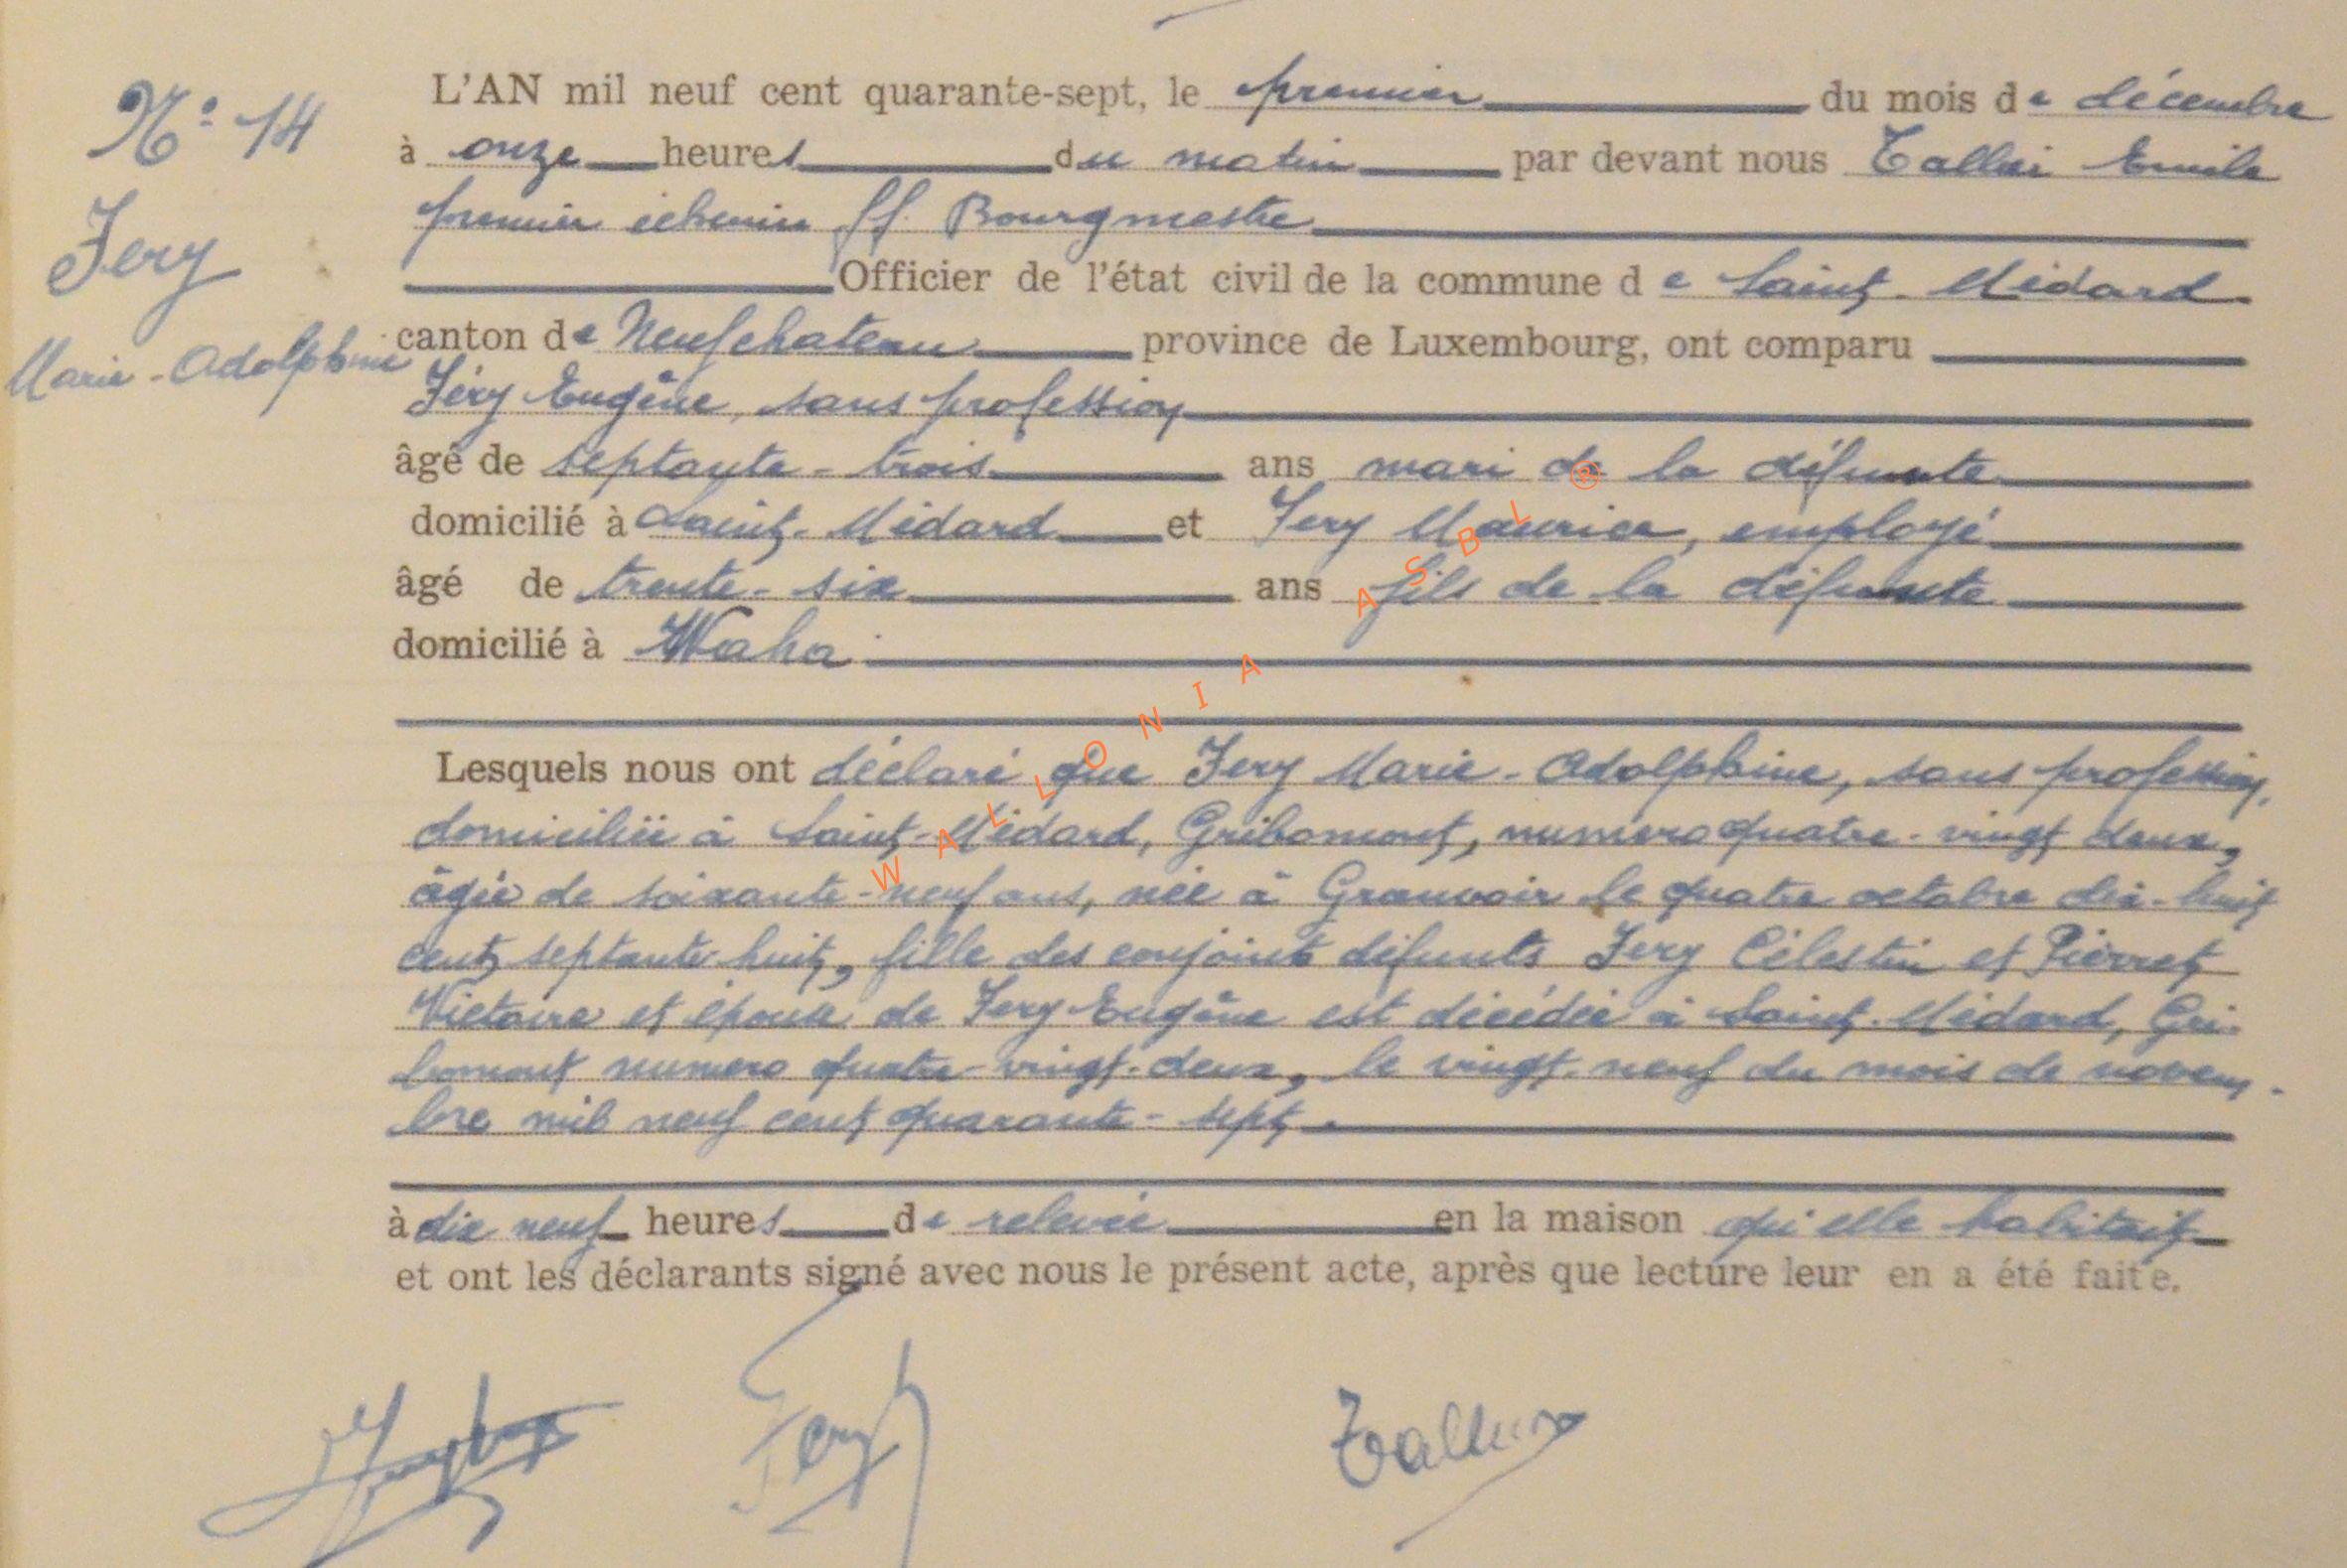 N° 14
Jery
Marie-Adolphine
L'AN mil neuf cent quarante-sept, le premier du mois de décembre
à onze heures du matin par devant nous Emile
premier échevin ff. Bourgmestre
Officier de l'état civil de la commune de Saint-Médard
canton de Neufchateau province de Luxembourg, ont comparu
Jéry Eugène, sans profession
âgé de septante-trois ans mari de la défunte
domicilié à Saint-Médard et Jery Maurice, employé
âgé de trente-six ans fils de la défunte
domicilié à Waha
Lesquels nous ont déclaré que Jery Marie-Adolphine, sans profession,
domiciliée à Saint-Médard, Gribomont, numéro quatre-vingt deux,
âgée de soixante-neuf ans, née à Grauvoir le quatre octobre dix-huit
cent septante-huit, fille des conjoints défunts Jery Célestin et Pierret
Victoire et épouse de Jery Eugène est décédée à Saint-Médard, Gri-
bomont numero quatre-vingt-deux, le vingt-neuf du mois de novem-
bre mil neuf cent quarante-sept.
à dix neuf heures de relevée en la maison qu'elle habitait
et ont les déclarants signé avec nous le présent acte, après que lecture leur en a été faite.
Jery
WALLONIA ASBL ®